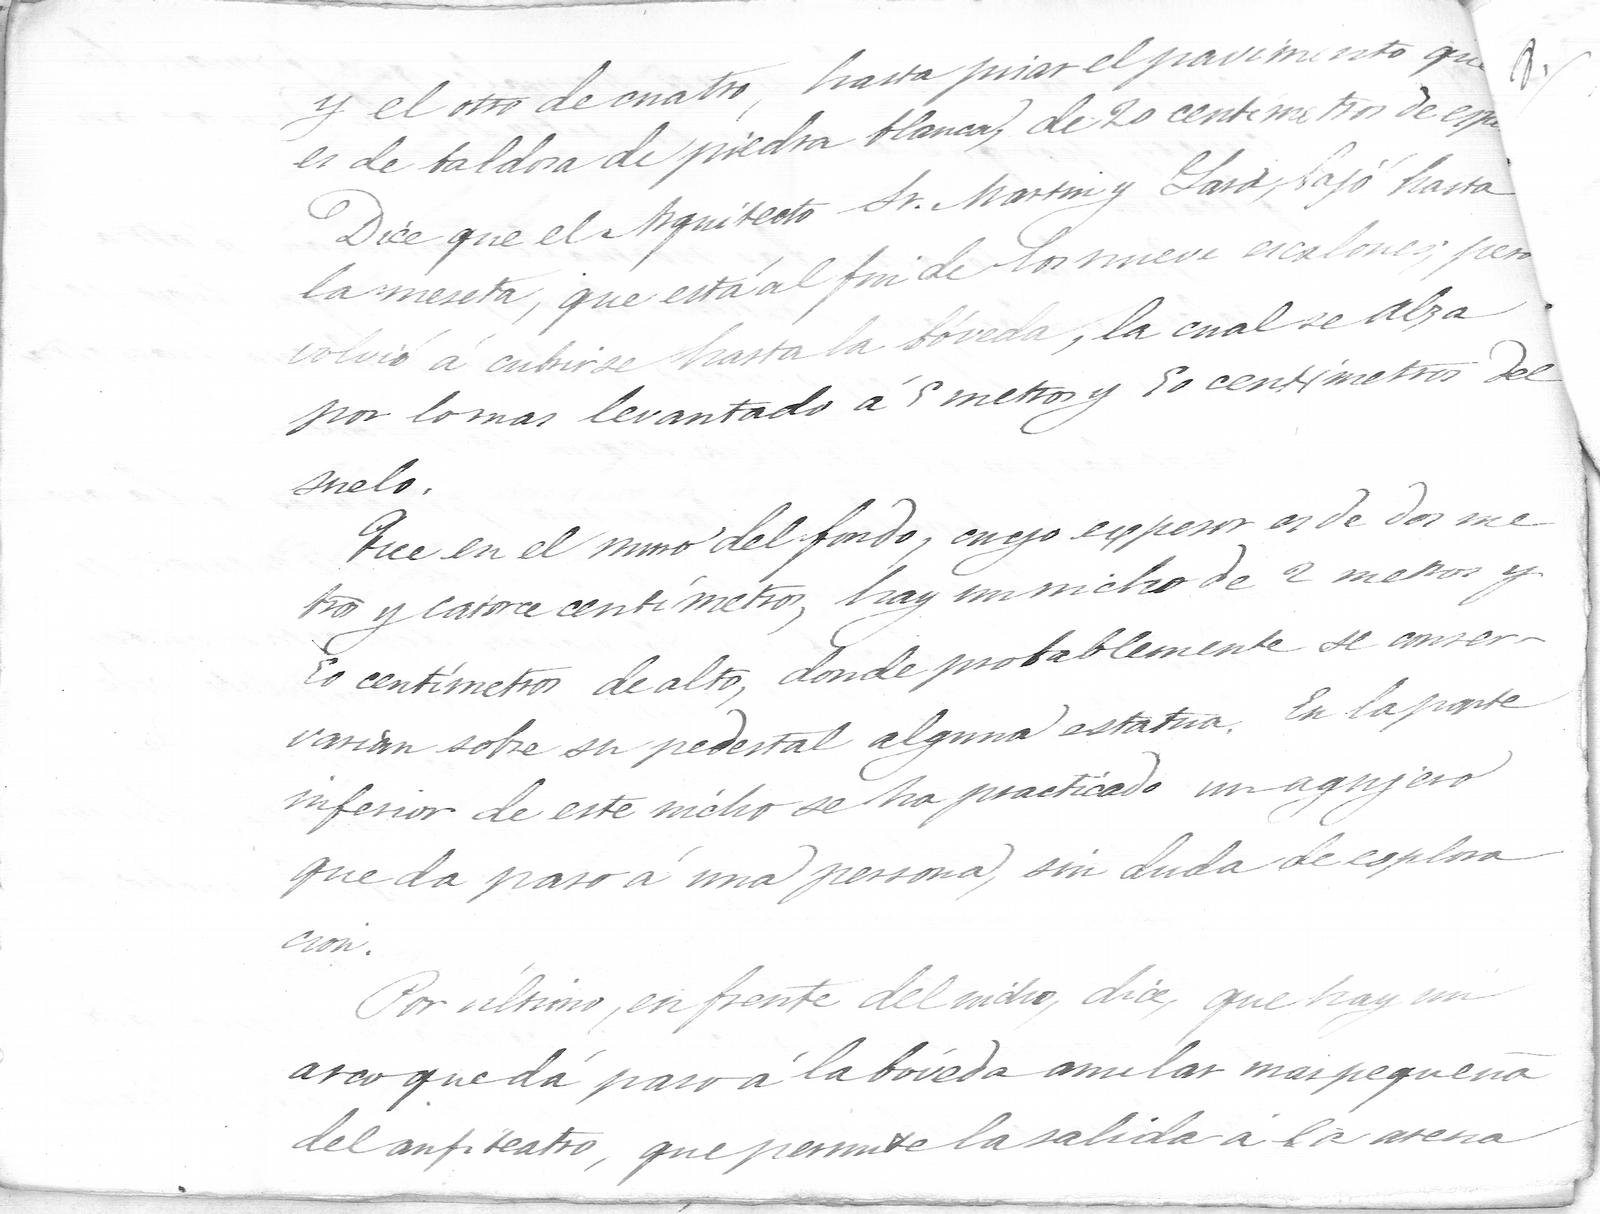 y el otro de cuatro, hasta pisar el pavimento que
es de baldosa de piedra blanca, de 20 centímetros de espe
Dice que el Arquitecto Sr. Martin y Lara, bajó hasta
la meseta, que está al fin de los nueve escalones; pero
volvió á cubrirse hasta la bóveda, la cual se alza
por lo mas levantado á 5 metros y 50 centímetros del
suelo.
Que en el muro del fondo, cuyo espesor es de dos me
tros y catorce centímetros, hay un nicho de 2 metros y
50 centímetros de alto, donde probablemente se conser-
varian sobre su pedestal alguna estatua. En la parte
inferior de este nicho se ha practicado un agujero
que da paso á una persona, sin duda de esplora
cion.
Por último, en frente del nicho, dice, que hay un
arco que dá paso á la bóveda anular mas pequeña
del anfiteatro, que permite la salida á la arena